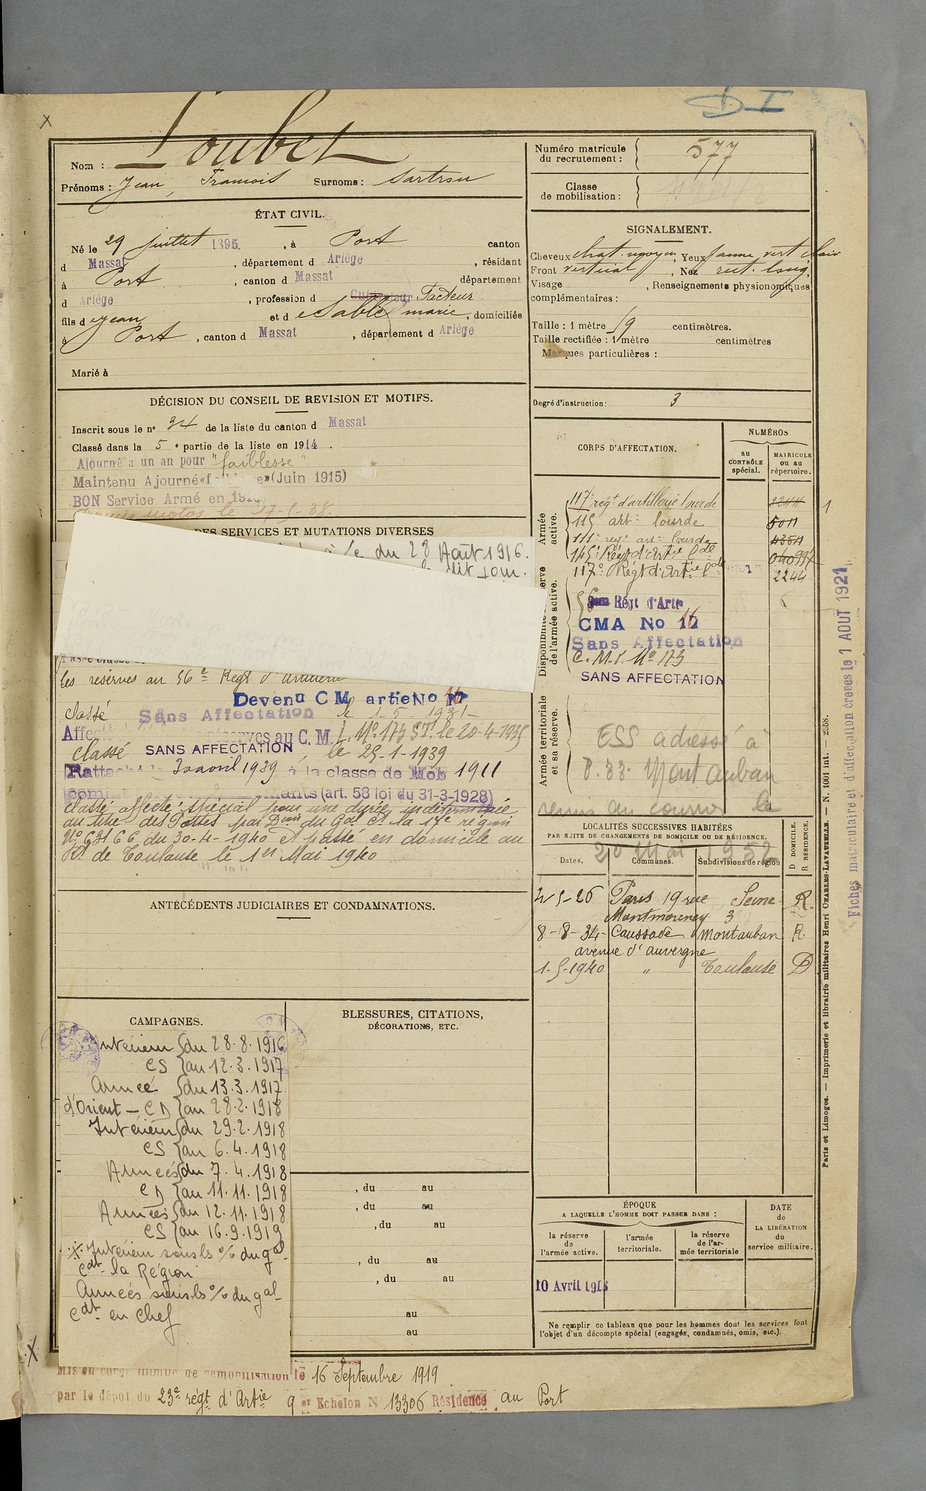 D I
Loubet
Nom :
Prénoms : Jean, François Surnoms : Sartrou
Numéro matricule du recrutement : 577
Classe de mobilisation :
ÉTAT CIVIL.
Né le 29 juillet 1895, à Port canton
d Massat, département d Ariège, résidant
à Port, canton d Massat département
d Ariège, profession d Cultivateur Facteur
fils d Jean et d Sablé marie, domiciliés
à Port, canton d Massat, département d Ariège
Marié à
SIGNALEMENT.
Cheveux chat. moyen, Yeux jaune vert clair
Front vertical, Nez rect. long,
Visage , Renseignements physionomiques
complémentaires :
Taille : 1 mètre 59 centimètres.
Taille rectifiée : 1 mètre centimètres
Marques particulières :
Degré d'instruction : 3
DÉCISION DU CONSEIL DE REVISION ET MOTIFS.
Inscrit sous le n° 34 de la liste du canton d Massat
Classé dans la 5e partie de la liste en 1914.
Ajourné a un an pour "faiblesse"
Maintenu Ajourné (Juin 1915)
BON Service Armé en
le 17-5-38
DES SERVICES ET MUTATIONS DIVERSES
du 28 Août 1916.
dit jour.
les réserves au 56e Régt d'artillerie
Devenu C M artie No 17
classé Sans Affectation le 1-5-1931
Affecté réserves au C. M. I. No 173 ST. le 20-4-1935
classé SANS AFFECTATION le 25-1-1939
Rattaché le 30 avril 1939 à la classe de Mob 1911
(art. 58 loi du 31-3-1928)
classé affecté spécial pour une durée indéterminée
au titre des Postes par Don du Gal Ct la 17e région
No 6816 G du 30-4-1940 et passé en domicile au
R. de Toulouse le 1er Mai 1940
CORPS D'AFFECTATION.
NUMÉROS
au CONTRÔLE spécial.
MATRICULE ou au répertoire.
Armée active.
117e régt d'artillerie lourde 2244
115 artie lourde 5011
111e régt artie lourde
145e Régt d'Artie Lde
117e Régt d'Artie Lde 2244
Disponibilité et réserve de l'armée active.
56 Régt d'Artie
CMA No 17
Sans Affectation
C. M. I. No 173
SANS AFFECTATION
Armée territoriale et sa réserve.
ESS adressé à
P.33. Montauban
reçu au courrier le
20 Mai 1952
LOCALITÉS SUCCESSIVES HABITÉES
PAR SUITE DE CHANGEMENTS DE DOMICILE OU DE RÉSIDENCE.
Dates. Communes. Subdivisions de région
D DOMICILE.
R RÉSIDENCE.
2-5-26 Paris 19 rue Seine R.
Montmorency 3
8-8-34 Caussade Montauban R.
avenue d'auvergne
1-5-1940 " Toulouse D
ANTÉCÉDENTS JUDICIAIRES ET CONDAMNATIONS.
CAMPAGNES.
Intérieur { du 28.8.1916
CS { au 12.3.1917
Armée { du 13.3.1917
d'Orient - CD { au 28.2.1918
Intérieur { du 29.2.1918
CS { au 6.4.1918
Armées { du 7.4.1918
CD { au 11.11.1918
Armées { du 12.11.1918
CS { au 16.9.1919
X Intérieur sous ls o/ du gal
Cdt la Région
Armées sous ls o/ du gal
Cdt en Chef
BLESSURES, CITATIONS,
DÉCORATIONS, ETC.
, du au
, du au
, du au
, du au
, du au
au
au
ÉPOQUE
A LAQUELLE L'HOMME DOIT PASSER DANS :
la réserve de l'armée active.
l'armée territoriale.
la réserve de l'armée territoriale
DATE de LA LIBÉRATION du service militaire.
10 Avril 1918
Ne remplir ce tableau que pour les hommes dont les services font
l'objet d'un décompte spécial (engagés, condamnés, omis, etc.).
Mis en congé illimité de démobilisation le 16 Septembre 1919
par le dépôt du 23e régt d'Artie 9 er Echelon N 13306 Résidence au Port
Fiches matriculaire et d'affectation créées le 1 AOUT 1921
Paris et Limoges. — Imprimerie et librairie militaires Henri CHARLES-LAVAUZELLE — N. 1001 int — 2558.